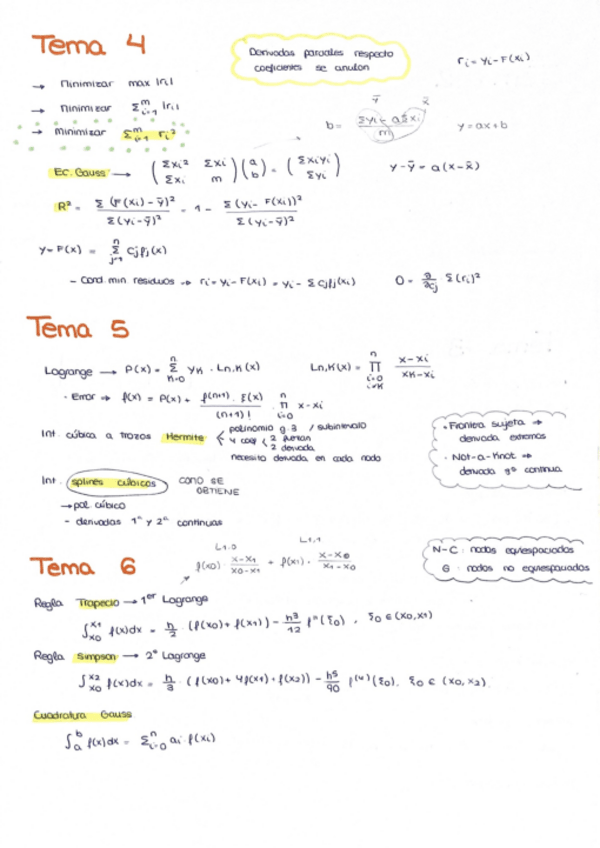 Tema 4
Derivadas parciales respecto
coeficientes se anulan
ri = yi - F(xi)
→ Minimizar max |ri|
→ Minimizar Σᵐᵢ₌₁ |ri|
→ minimizar Σᵐᵢ₌₁ ri²
ȳ x̄
b = (Σyi - aΣxi) / m
y = ax + b
Ec. Gauss → (Σxi² Σxi / Σxi m) (a / b) = (Σxiyi / Σyi)
y - ȳ = a(x - x̄)
R² = Σ(F(xi) - ȳ)² / Σ(yi - ȳ)² = 1 - Σ(yi - F(xi))² / Σ(yi - ȳ)²
y = F(x) = Σⁿⱼ₌₁ cjfj(x)
- Cond. min. residuos → ri = yi - F(xi) = yi - Σcjfj(xi)
0 = ∂/∂cj Σ(ri)²
Tema 5
Lagrange → P(x) = Σⁿₖ₌₀ yK · Ln,K(x)
Ln,K(x) = Πⁿ i=0 i≠K (x - xi) / (xK - xi)
· Error → f(x) = P(x) + f(n+1) · ξ(x) / (n+1)! · Πⁿᵢ₌₀ x - xi
Int. cúbica a trozos Hermite
polinomio g. 3 / subintervalo
4 coef 2 funcion
2 derivada
necesito derivada en cada nodo
· Frontera sujeta →
derivada extremos
· Not-a-Knot →
derivada 3ª continua
Int. splines cúbicos
COMO SE
OBTIENE
→ pol. cúbico
- derivadas 1ª y 2ª continuas
Tema 6
L1,0 L1,1
f(x0) · (x - x1) / (x0 - x1) + f(x1) · (x - x0) / (x1 - x0)
N-C : nodos equiespaciados
G : nodos no equiespaciados
Regla Trapecio → 1er Lagrange
∫ˣ¹ₓ₀ f(x)dx = h/2 · (f(x0) + f(x1)) - h³/12 f''(ξ0) , ξ0 ∈ (x0, x1)
Regla Simpson → 2º Lagrange
∫ˣ²ₓ₀ f(x)dx = h/3 · (f(x0) + 4f(x1) + f(x2)) - h⁵/90 f⁽⁴⁾(ξ0) . ξ0 ∈ (x0, x2)
Cuadratura Gauss
∫ᵇₐ f(x)dx = Σⁿᵢ₌₀ ai f(xi)